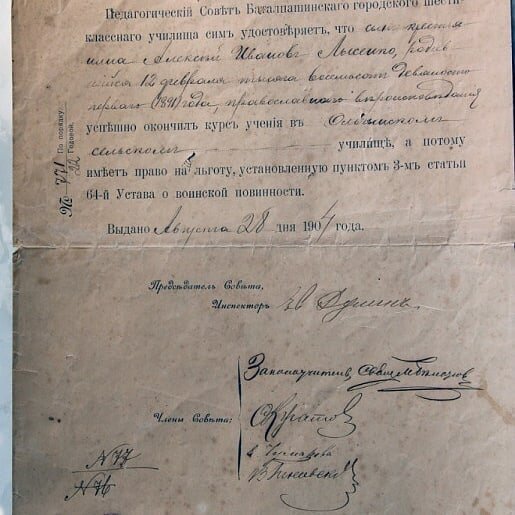 Педагогическій Совѣтъ Баталпашинскаго городского шести-
класснаго училища симъ удостовѣряетъ, что сынъ крестья-
нина Алексѣй Ивановъ Лысенко, родив-
шійся 12 февраля тысяча восемьсотъ девяносто
перваго 1891 года, православнаго вѣроисповѣданія
успѣшно окончилъ курсъ ученія въ
сельскомъ училищѣ, а потому
имѣетъ право на льготу, установленную пунктомъ 3-мъ статьи
64-й Устава о воинской повинности.
Выдано Августа 28 дня 1904 года.
№
По порядку.
Годовой.
Предсѣдатель Совѣта,
Инспекторъ
Законоучитель, Свящ.
Члены Совѣта:
N 77
N 76